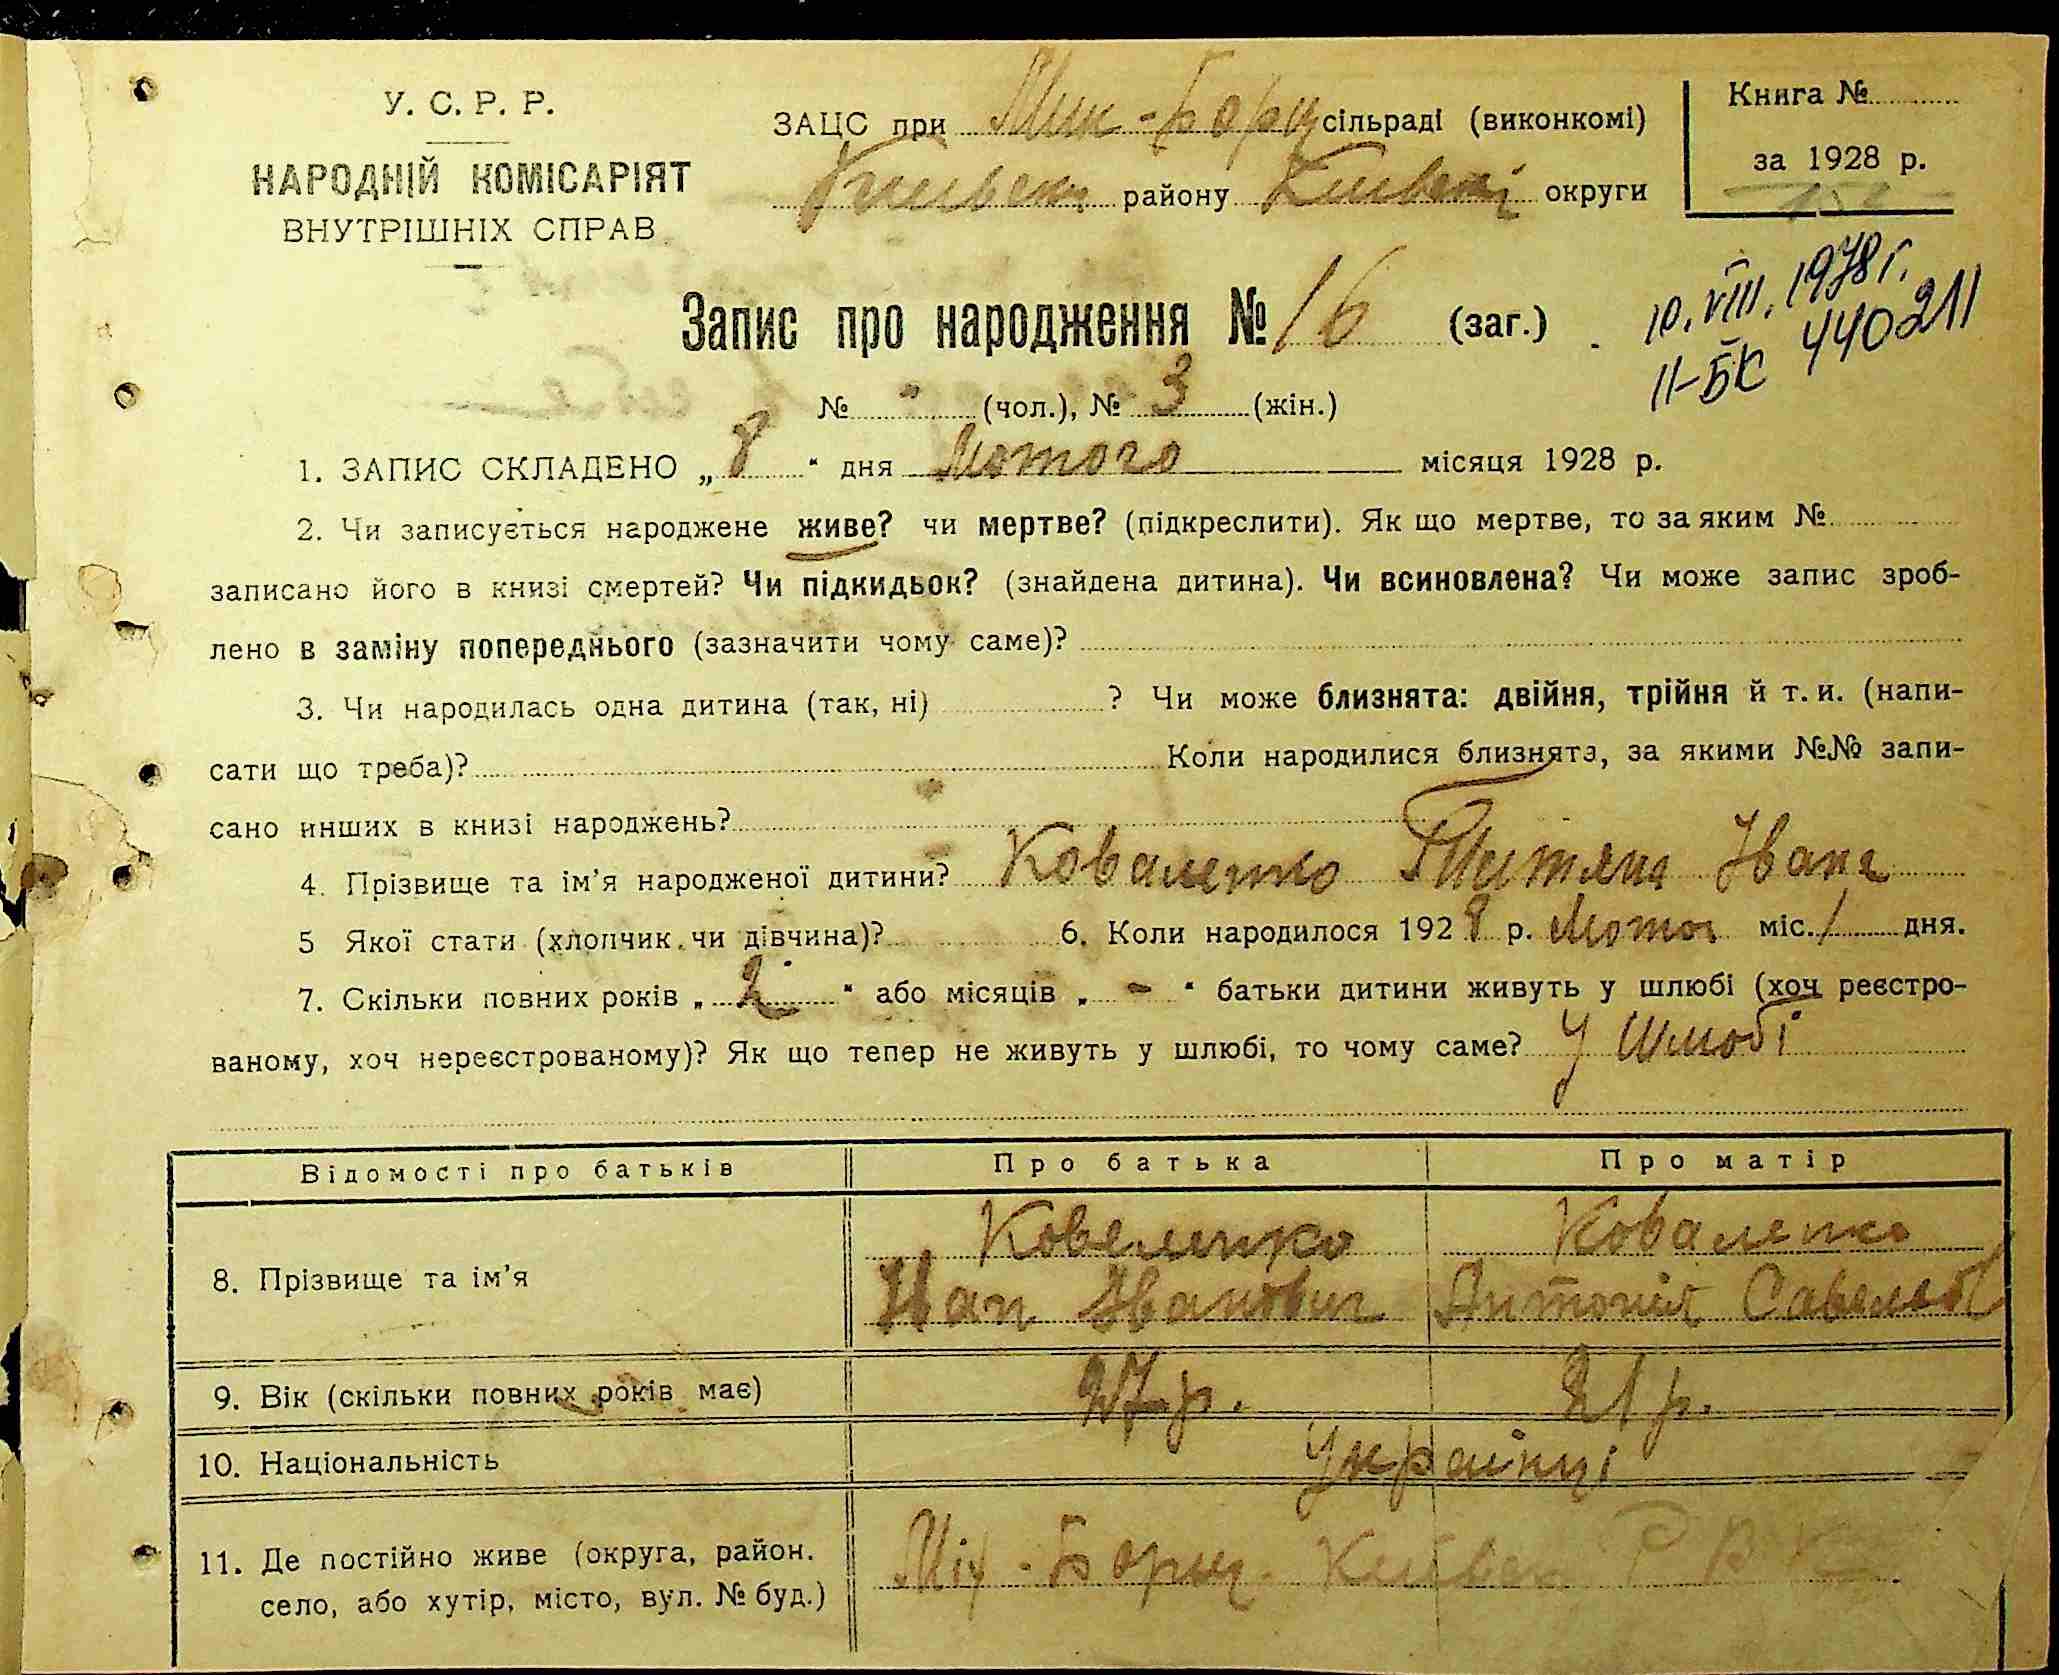 У. С. Р. Р.
НАРОДНІЙ КОМІСАРІЯТ
ВНУТРІШНІХ СПРАВ
ЗАЦС при Мик-Борщ сільраді (виконкомі)
Київськ району Київські округи
Книга №
за 1928 р.
Запис про народження № 16 (заг.)
10. VIII. 1978 г.
II-БК 440211
№ " (чол.), № 3 (жін.)
1. ЗАПИС СКЛАДЕНО „ 8 " дня Лютого місяця 1928 р.
2. Чи записується народжене живе? чи мертве? (підкреслити). Як що мертве, то за яким №
записано його в книзі смертей? Чи підкидьок? (знайдена дитина). Чи всиновлена? Чи може запис зроб-
лено в заміну попереднього (зазначити чому саме)?
3. Чи народилась одна дитина (так, ні) ? Чи може близнята: двійня, трійня й т. и. (напи-
сати що треба)? Коли народилися близнята, за якими №№ запи-
сано инших в книзі народжень?
4. Прізвище та ім'я народженої дитини? Коваленко Титяна Івана
5 Якої стати (хлопчик чи дівчина)? 6. Коли народилося 1928 р. Лютог міс. 1 дня.
7. Скільки повних років „ 2 " або місяців „ - " батьки дитини живуть у шлюбі (хоч реєстро-
ваному, хоч нереєстрованому)? Як що тепер не живуть у шлюбі, то чому саме? У шлюбі
Відомості про батьків Про батька Про матір
8. Прізвище та ім'я
Коваленко Коваленко
Іван Іванович Антоніна Савелев
9. Вік (скільки повних років має) 27 р. 21 р.
10. Національність Українці
11. Де постійно живе (округа, район,
село, або хутір, місто, вул. № буд.)
Міх-Борщ. Київськ Р В К